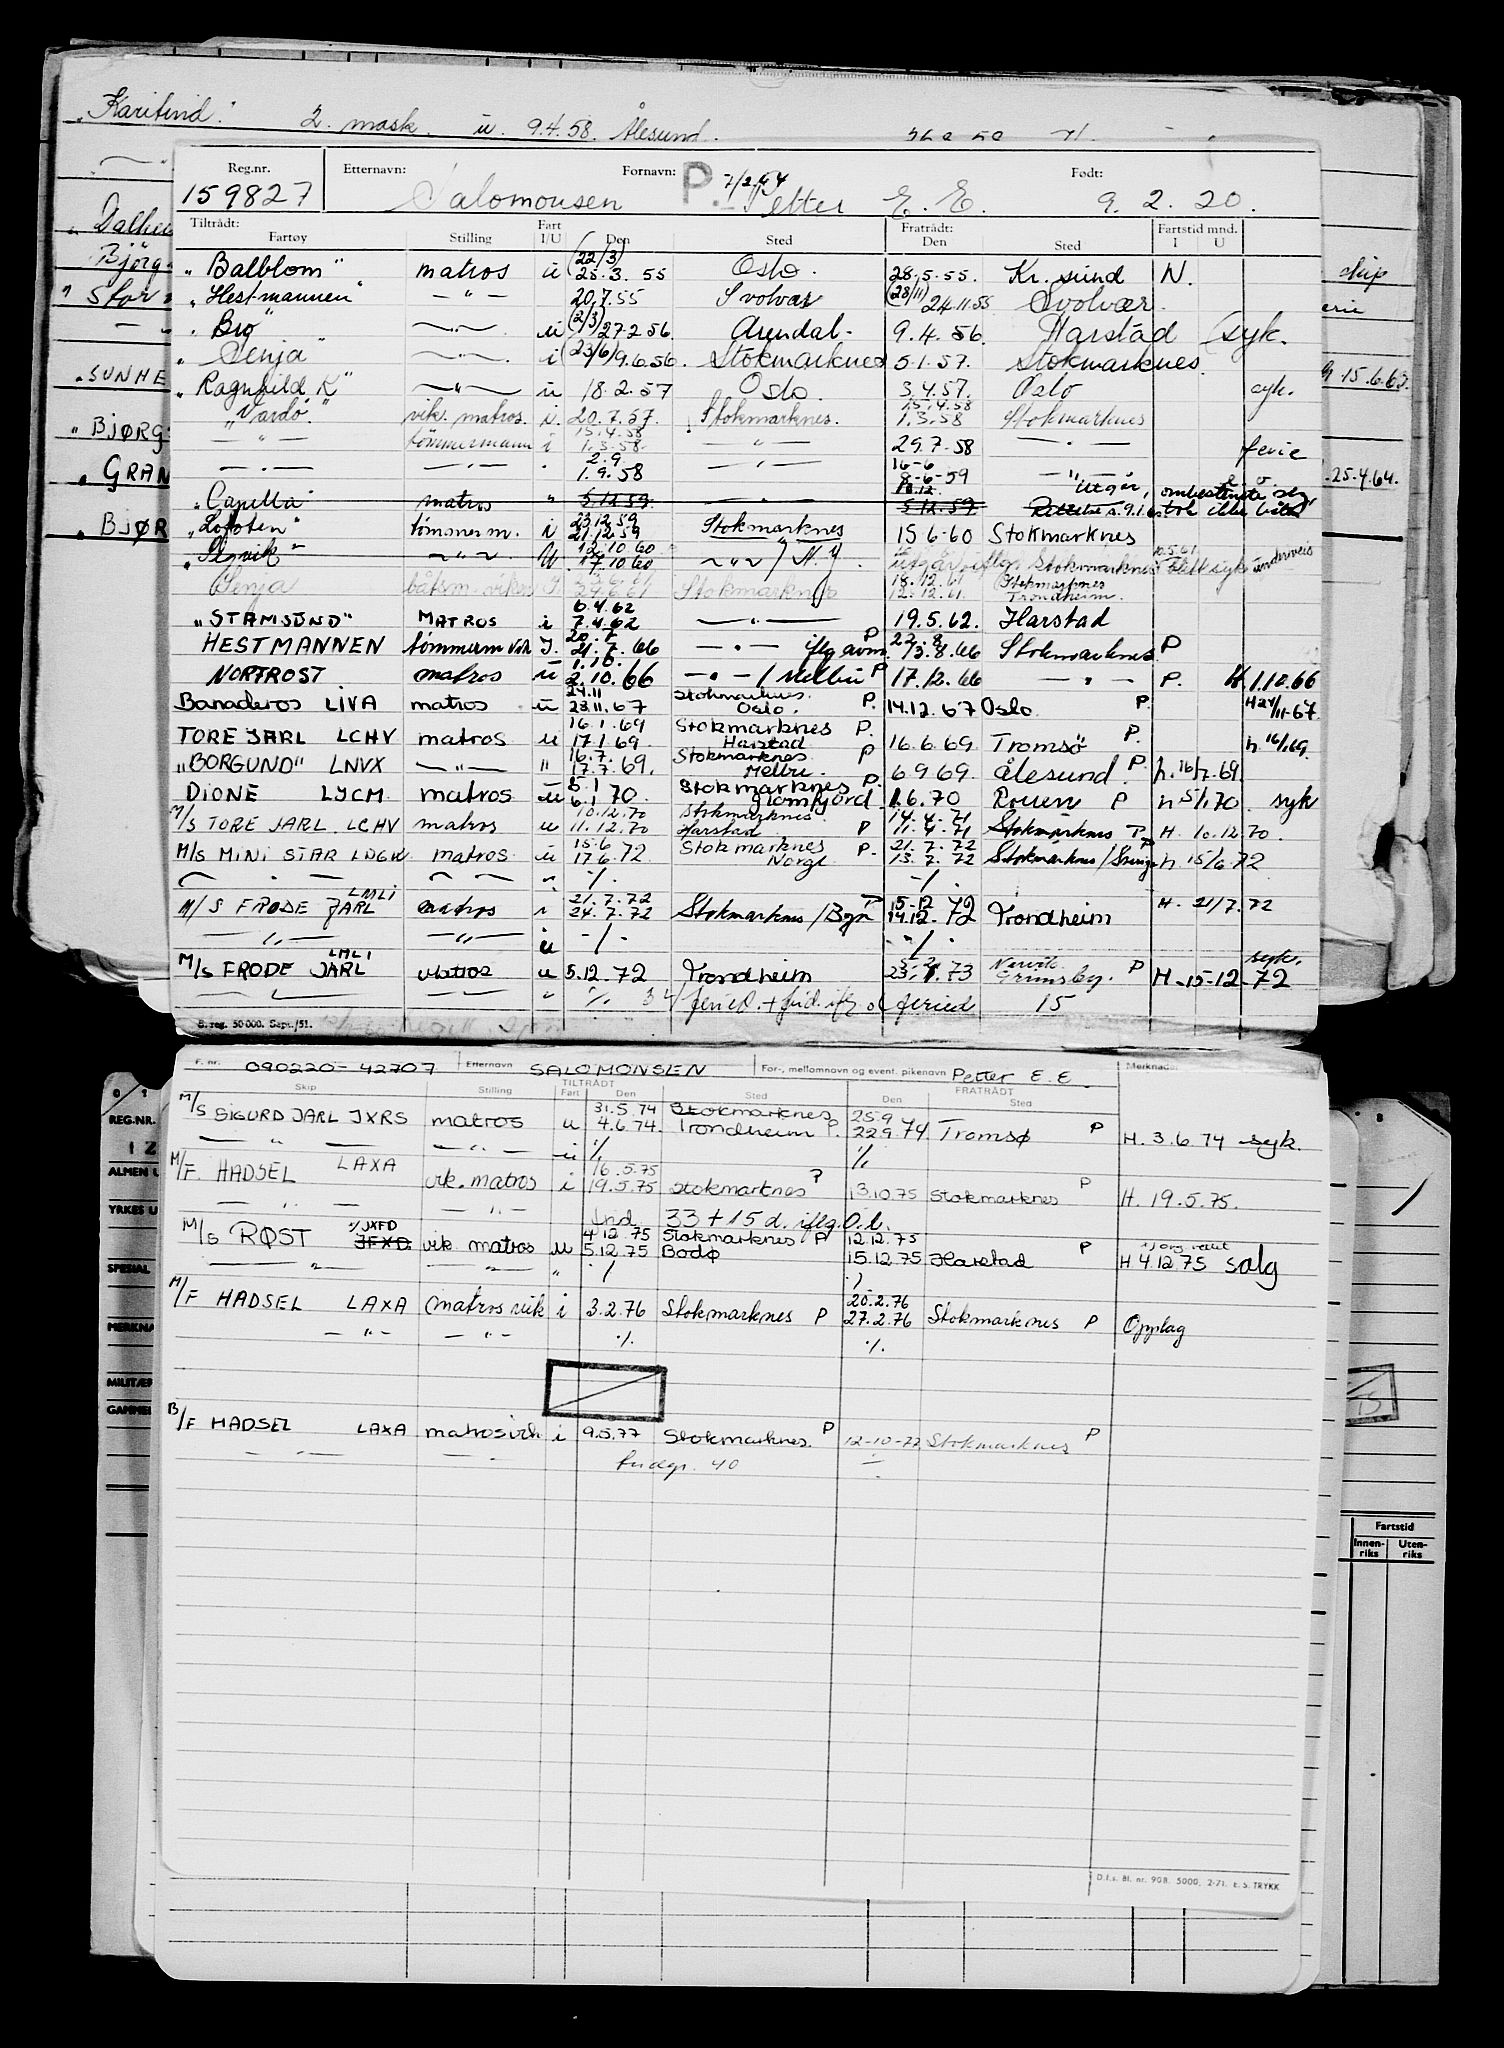 "Karitind" 2. mask. u. 9.4.58. Ålesund.
Reg.nr. Etternavn: Fornavn: P. 7/2.44 Født:
159827 Salomonsen Petter E. E. 9. 2. 20.
Tiltrådt: Fratrådt: Fartstid mnd.
Fartøy Stilling Fart I/U Den Sted Den Sted I U
"Balblom" matros u (22/3) 25.3.55 Oslo. 28.5.55. Kr. sund N.
"Hestmannen" — " — 20.7.55 Svolvær (28/11) 24.11.55 Svolvær.
"Bro" — " — u (2/3) 27.2.56 Arendal. 9.4.56. Harstad (syk.
"Senja" — " — i (23/6) 9.6.56. Stokmarknes 5.1.57. Stokmarknes.
"Ragnhild K" — " — u 18.2.57 Oslo. 3.4.57. Oslo syk.
"Vardö". vik. matros. i. 20.7.57. Stokmarknes. 15.4.58 1.3.58 Stokmarknes
— " — tömmermann i 15.4.58 1.3.58. — " — 29.7.58 — " — ferie
— " — — " — 2.9 1.9.58 — " — 16-6 8-6-59 — " —
"Capella" matros " 5.12.59. — " — 5.12.59. Utgår, ombestemte seg
"Lofoten" tömmerm. i 23.12.59 21.12.59 Stokmarknes 15.6.60 Stokmarknes
— " — U 12.10.60 17.10.60 — " — / N.Y. Stokmarknes 10.5.61 blitt syk underveis
Senja båtsm. vikar I. 24.6.61 Stokmarknes 18.12.61 12.12.61. Stokmarknes Trondheim.
"STAMSUND" MATROS i 6.4.62 7.4.62 — " — 19.5.62. Harstad
HESTMANNEN tömmerm vik I. 20.7. 21.7.66 — " — iflg avm. P 22.8. /3.8.66 Stokmarknes P
NORFROST matros u 1.10. 2.10.66 — " — / Melbu P 17.12.66 — " — P. H. 1.10.66
Banaderos LIVA matros u 24.11 28.11.67 Stokmarknes. Oslo. P. 14.12.67 Oslo. P. H 24/11-67.
TORE JARL LCHV matros u 16.1.69 17.1.69 Stokmarknes Harstad P. 16.6.69 Tromsö P. h. 16/1.69
"BORGUND" LNVX — " — " 16.7. 17.7.69. Stokmarknes Melbu. P 6.9.69. Ålesund. P. h. 16/7.69.
DIONE LJCM matros u 5.1 6.1.70. Stokmarknes Glomfjord P. 1.6.70 Rouen P h 5/1.70. syk
M/S TORE JARL LCHV matros u 10.12.70 11.12.70 Stokmarknes. Harstad P 14.4.71 11.4.71 Stokmarknes P H. 10.12.70.
M/S MINI STAR LDGK matros. u 15.6 17.6.72 Stokmarknes Norge P. 21.7.72 13.7.72 Stokmarknes / P h 15/6.72
— " — — " — " -/. -/.
M/S FRODE JARL LMLI matros i 21.7.72 24.7.72 Stokmarknes / Bgn P 15-12 14.12.72 Trondheim H. 21/7.72
— " — — " — u -/- -/-
M/S FRODE JARL LMLI matros u 5.12.72 Trondheim 23.1.73 Narvik Grimsby. P H. 15-12-72 syk.
— " — — " — " -/. 34 feried. + frid. iflg. o.l. feried 15
S. reg. 50 000. Sept./51.
F. nr. 090220-42707 Etternavn SALOMONSEN For-, mellomnavn og event. pikenavn Petter E. E. Merknader
TILTRÅDT FRATRÅDT
Skip Stilling Fart Den Sted Den Sted
M/S SIGURD JARL JXRS matros u 31.5.74 4.6.74. Stokmarknes Trondheim P. 25.9 22.9.74 Tromsø P H. 3.6.74 syk.
— " — — " — u -/. -/.
M/F. HADSEL LAXA vik. matros i 16.5.75 19.5.75 Stokmarknes P 13.10.75 Stokmarknes P H. 19.5.75.
— " — — " — Ind 33 + 15 d. iflg. O.l.
M/S RØST JXFD JFXD. vik. matros u 4.12.75 5.12.75 Stokmarknes P Bodø 12.12.75 15.12.75 Harstad P H 4.12.75 salg
— " — — " — " -/ -/
M/F HADSEL LAXA (matros vik i 3.2.76 Stokmarknes P 20.2.76 27.2.76 Stokmarknes P Opplag
— " — — " — -/. -/.
B/F HADSEL LAXA matros vik i 9.5.77 Stokmarknes. P 12-10-77 Stokmarknes P
— " — — " — fridgr. 40
D.f.s. Bl. nr. 90B. 5000, 2-71. E. S. TRYKK
"Dalhei
Björg
"Stor
"SUNHE
"BJØRG
"GRAN
"BJØR
skip
erie
15.6.63.
25.4.64.
REG.NR.
1 2
ALMEN U
YRKES U
SPESIAL
MERKNA
MILITÆR
GAMMEL
8
15
Fartstid
Innen-riks Uten-riks